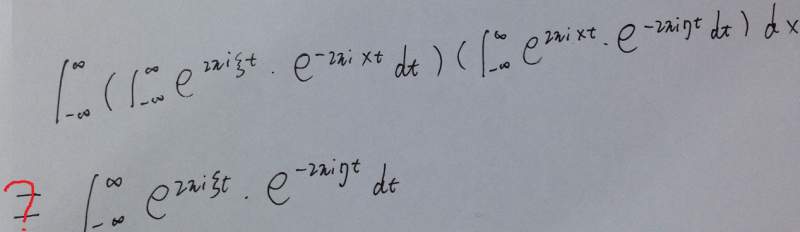 ∫_{-∞}^{∞} ( ∫_{-∞}^{∞} e^{2πiξt} · e^{-2πixt} dt ) ( ∫_{-∞}^{∞} e^{2πixt} · e^{-2πiηt} dt ) dx
? = ∫_{-∞}^{∞} e^{2πiξt} · e^{-2πiηt} dt